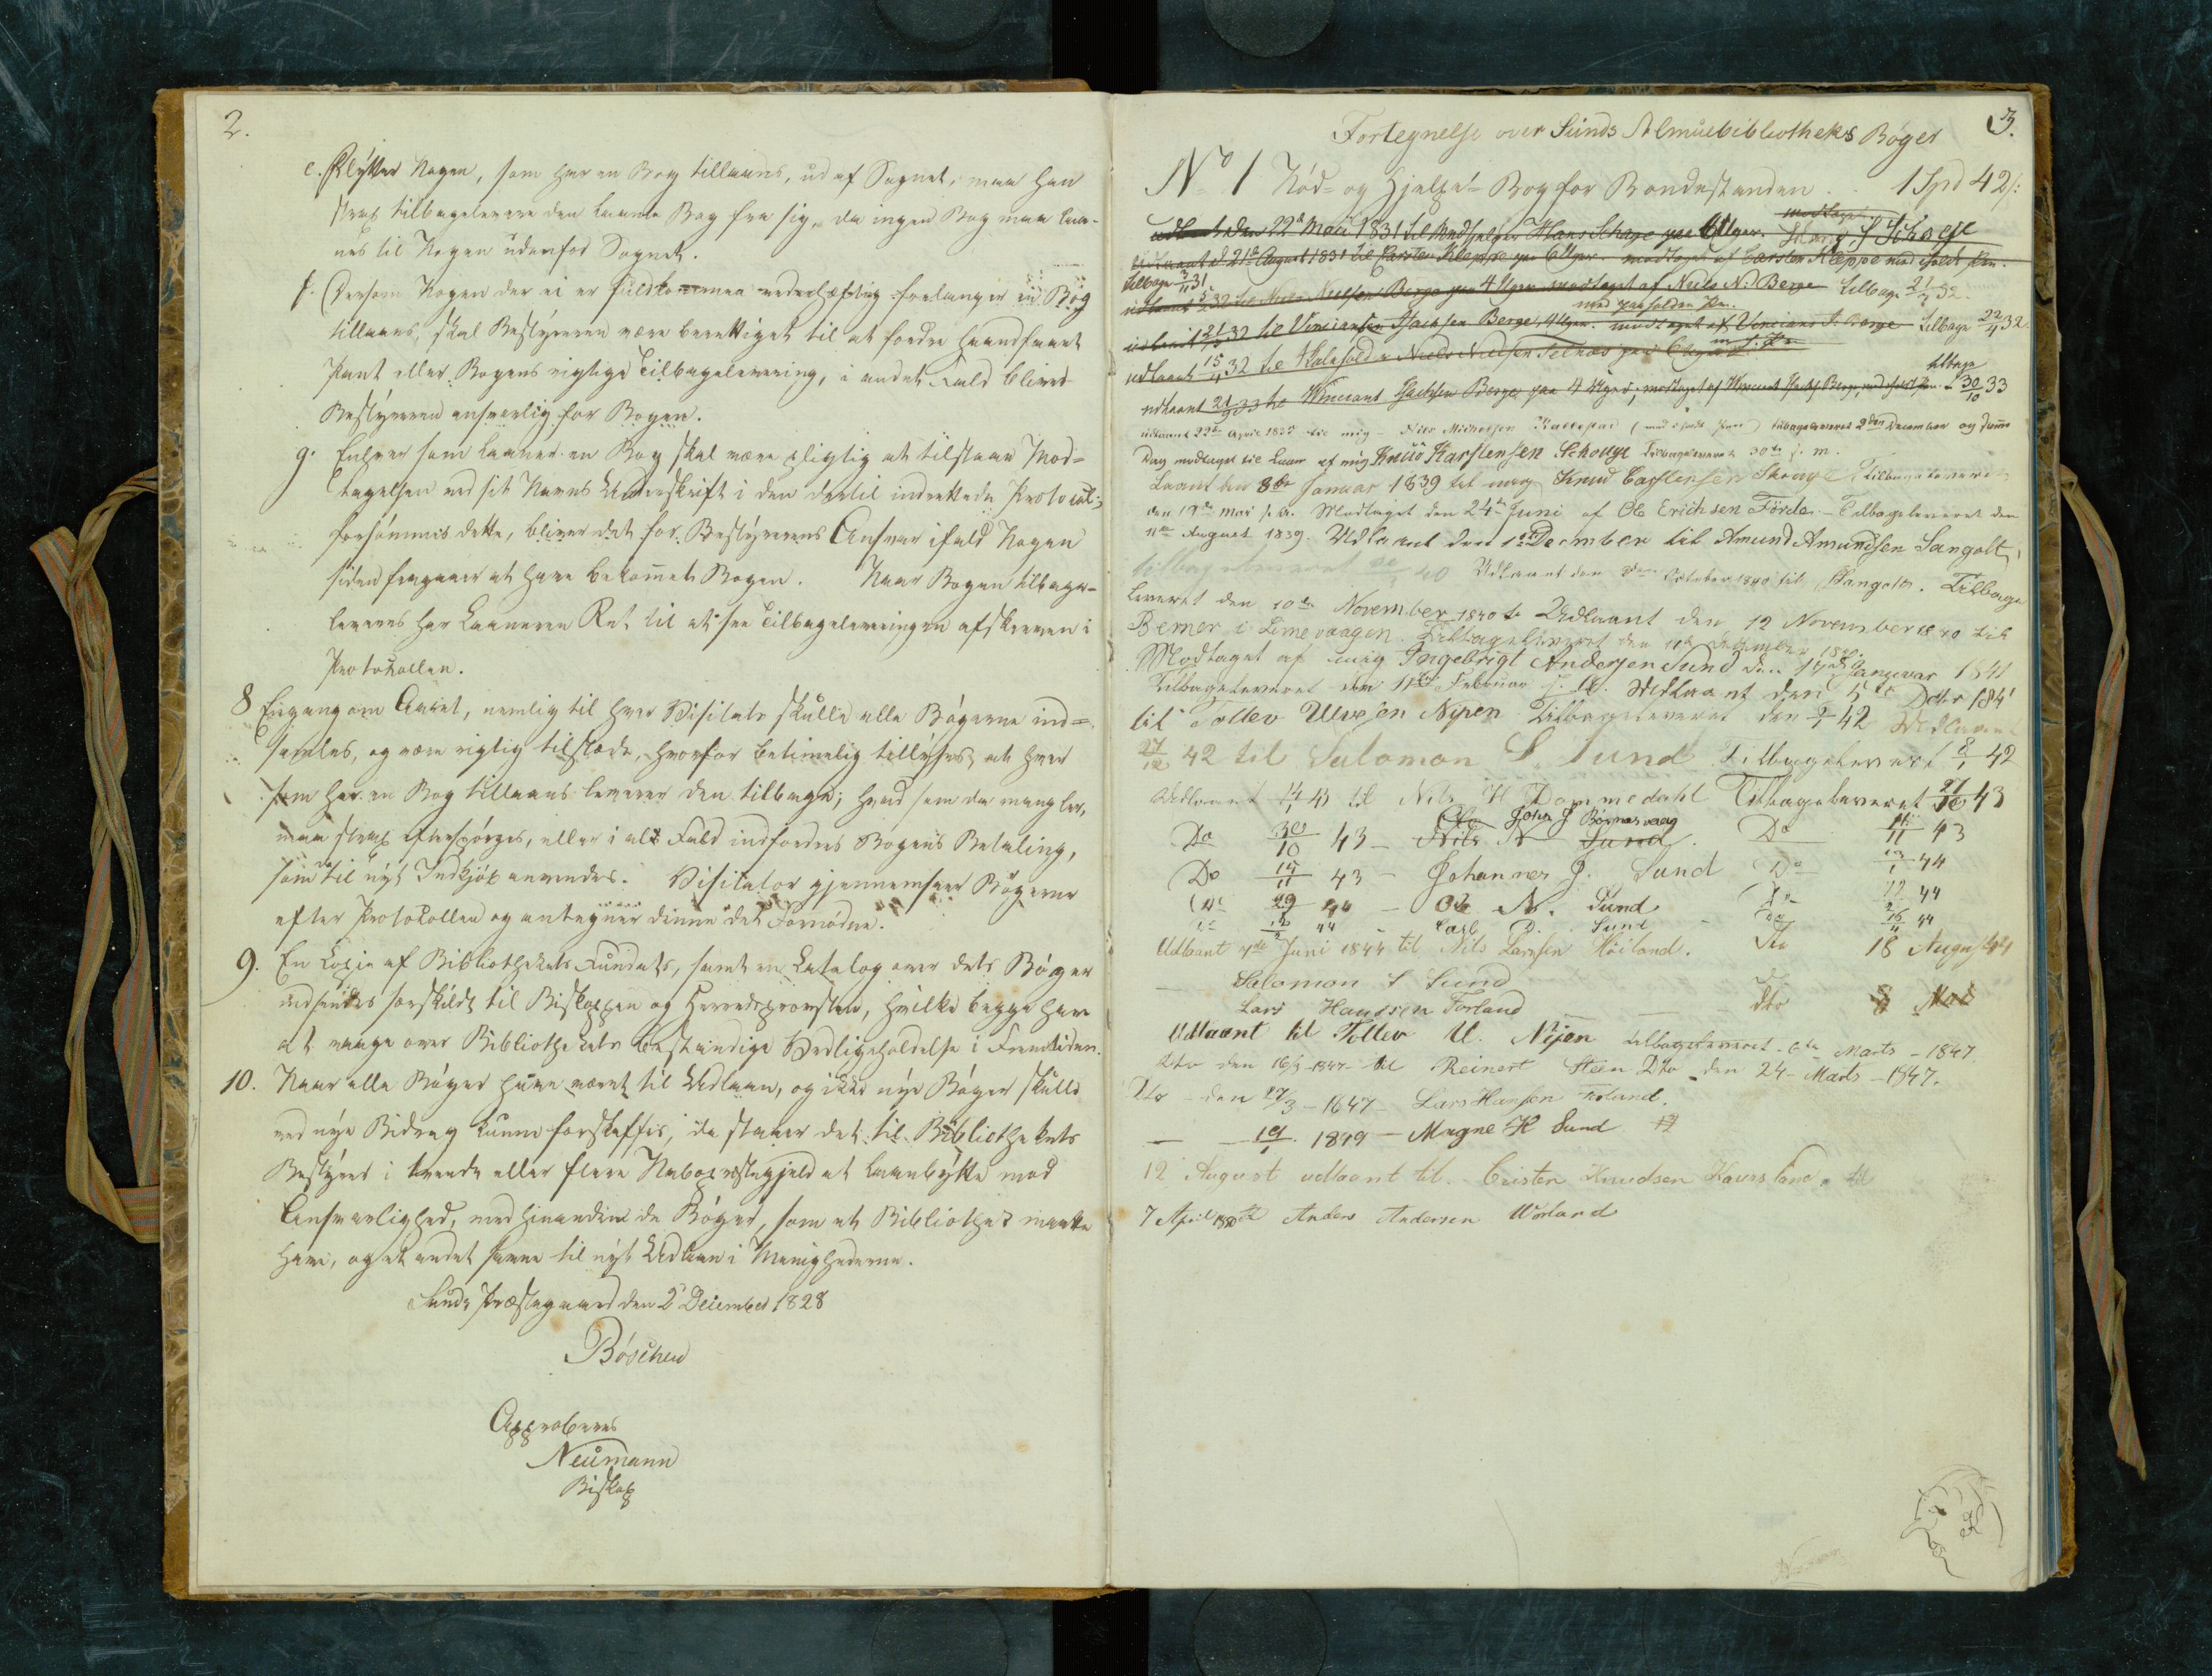 2.
e. Flytter Nogen, som har en Bog tillaans, ud af Sognet, maa han
strax tilbagelevere den laante Bog fra sig, da ingen Bog maa laa-
nes til Nogen udenfor Sognet.
f. Dersom Nogen der ei er fuldkommen vederhæftig forlanger en Bog
tillaans, skal Bestyreren være berettiget til at fordre haandfaaet
Pant eller Bogens rigtige Tilbagelevering, i andet Fald bliver
Bestyreren ansvarlig for Bogen.
g. Enhver som laaner en Bog skal være pligtig at tilstaae Mod-
tagelsen ved sit Navns Underskrift i den dertil indrettede Protocol;
forsömmes dette, bliver det for Bestyrerens Ansvar ifald Nogen
siden fragaaer at have bekommet Bogen. Naar Bogen tilbage-
leveres har Laaneren Ret til at see Tilbageleveringen afskreven i
Protokollen.
8 Engang om Aaret, nemlig til hver Visitats skulle alle Bögerne ind-
samles, og være rigtig tilstæde, hvorfor betimelig tillyses, at hver
som har en Bog tillaans leverer den tilbage; hvad som da mangler,
maa strax efterspörges, eller i alt Fald indfordres Bogens Betaling,
som da til nyt Indkjöb anvendes. Visitator gjennemseer Bögerne
efter Protokollen og antegner dinne det Fornödne.
9. En Copie af Bibliothekets Fundats, samt en Catalog over dets Böger
indsendes særskildt til Biskoppen og Herredsprovsten, hvilke begge have
at vaage over Bibliothekets bestandige Vedligeholdelse i Fremtiden.
10. Naar alle Böger have været til Udlaan, og ikke nye Böger skulle
ved nye Bidrag kunne forskaffes, da staaer det til Bibliothekets
Bestyrer i tvende eller flere Nabopræstegjeld at laanbytte mod
Ansvarlighed, med hinanden de Böger, som et Bibliothek maatte
have, og et andet savne til nyt Udlaan i Menighederne.
Sunds Præstegaard den 2 December 1828
Böschen
Approberes
Neumann
Biskop
3.
Fortegnelse over Sunds Almuebibliotheks Böger
No 1 Nöd- og Hjelpe- Bog for Bondestanden . . 1 Spd 42 s:
modtaget.
udlaant den 22d Mai 1831 til Medhjelper Hans Schage paa 6 Uger. Schoge
Udlaant d 21de August 1831 til Carsten Kleppe paa 6 Uger. modtaget af Carsten Kleppe med
tilbage 3/11 31
udlaant 5/ 32 til Niels Nielsen Berge paa 4 Uger modtaget af Niels N. Berge tilbage 21/ 32.
udlaant 21/ 32 til Vincians Isachsen Berge, 4 Uger. modtaget af Vincians I. Berge tilbage 22/4 32
udlaant 15/ 32 til Niels Nielsen Telnæs paa
tilbage
udlaant 21/ 33 til Vincians Isachsen Berge paa 4 Uger, modtaget af Vincent Isachs Berge 30/10 33
udlaant 22de April 1835 til mig Nils Michelsen tilbageleveret 9den December og samme
Dag modtaget til Laan af mig Knud Karstensen Schouge Tilbageleveret 30te s. m.
Laant den 8de Januar 1839 til mig Knud Carstensen Skouge Tilbageleveret
den 19de Mai s. A. Modtaget den 24de Juni af Ole Erichsen Förde. Tilbageleveret den
11te August 1839. Udlaant den 1ste December til Amund Amundsen Sangolt,
tilbageleveret 40 Udlaant den October 1840 til Sangolt. Tilbage
leveret den 10de November 1840 Udlaant den 12 November 1840 til
Bemer i Limevaagen. Tilbageleveret den 11te December 1840.
Modtaget af mig Ingebrigt Andersen Sund den 14de Januar 1841
Tilbageleveret den 11te Februar s. A. Udlaant den 5te Dcbr 1841
til Tollev Ulvesen Nipen Tilbageleveret den 42 Udlaant
27/12 42 til Salomon S. Sund Tilbageleveret 8/1 42
Udlaant 14/1 43 til Nils H Dommedahl Tilbageleveret 27/10 43
John J Börnesvaag
Do 30/10 43 - Nils N Sund. Do 11 43
Do 15/11 43 - Johannes J. Sund Do 13/1 44
Do 29 44 - Ole N. Sund Do 12 44
44 - Carl D. Sund Do 16 44
Udlaant 7de Juni 1844 til Nils Larssen Höiland. Dto 18 August 44
Salomon S Sund
Lars Hanssen Forland - - dto 8 Mai
Udlaant til Tollev U. Nipen tilbageleveret 6te Marts - 1847.
Dto den 16/3 1847 til Reinert Steen Dto den 24 - Marts - 1847.
Dto - den 27/3 - 1847 - Lars Hansen Forland.
- - 19/1. 1849 - Magne H Sund
12 August udlaant til. Cristen Knudsen Kausland.
7 April 1850 Anders Andersen Worland